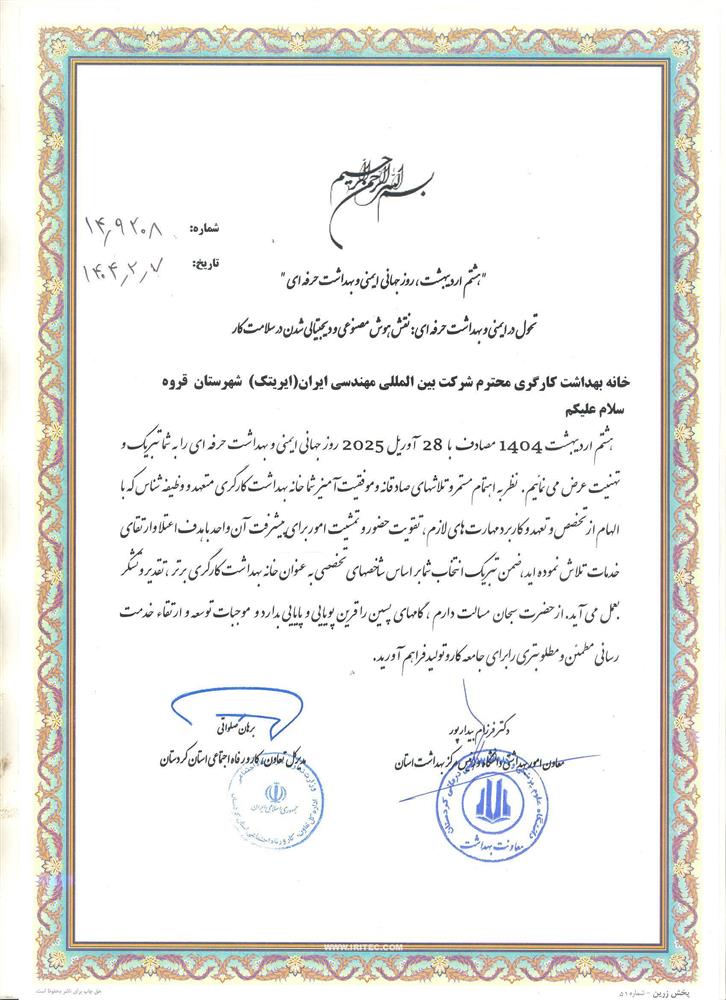 بسم الله الرحمن الرحیم
شماره: ۱۴٫۹۲۰۸
تاریخ: ۱۴۰۴٫۲٫۷
"هشتم اردیبهشت، روز جهانی ایمنی و بهداشت حرفه ای"
تحول در ایمنی و بهداشت حرفه ای: نقش هوش مصنوعی و دیجیتالی شدن در سلامت کار
خانه بهداشت کارگری محترم شرکت بین المللی مهندسی ایران(ایریتک) شهرستان قروه
سلام علیکم
هشتم اردیبهشت 1404 مصادف با 28 آوریل 2025 روز جهانی ایمنی و بهداشت حرفه ای را به شما تبریک و
تهنیت عرض می نمائیم. نظر به اهتمام مستمر و تلاشهای صادقانه و موفقیت آمیز شما خانه بهداشت کارگری متعهد و وظیفه شناس که با
الهام از تخصص و تعهد و کاربرد مهارت های لازم، تقویت حضور و تمشیت امور برای پیشرفت آن واحد با هدف اعتلا و ارتقای
خدمات تلاش نموده اید، ضمن تبریک انتخاب شما بر اساس شاخصهای تخصصی به عنوان خانه بهداشت کارگری برتر، تقدیر و تشکر
بعمل می آید. از حضرت سبحان مسالت دارم، گامهای پسین را قرین پویایی و پایایی بدارد و موجبات توسعه و ارتقاء خدمت
رسانی مطمئن و مطلوبتری را برای جامعه کار و تولید فراهم آورید.
دکتر فرزام بیدارپور
معاون امور بهداشتی دانشگاه و رئیس مرکز بهداشت استان
معاونت بهداشت
برهان صلواتی
مدیرکل تعاون، کار و رفاه اجتماعی استان کردستان
جمهوری اسلامی ایران
WWW.IRITEC.COM
پخش زرین - شماره ۵۱۰
حق چاپ برای ناشر محفوظ است.